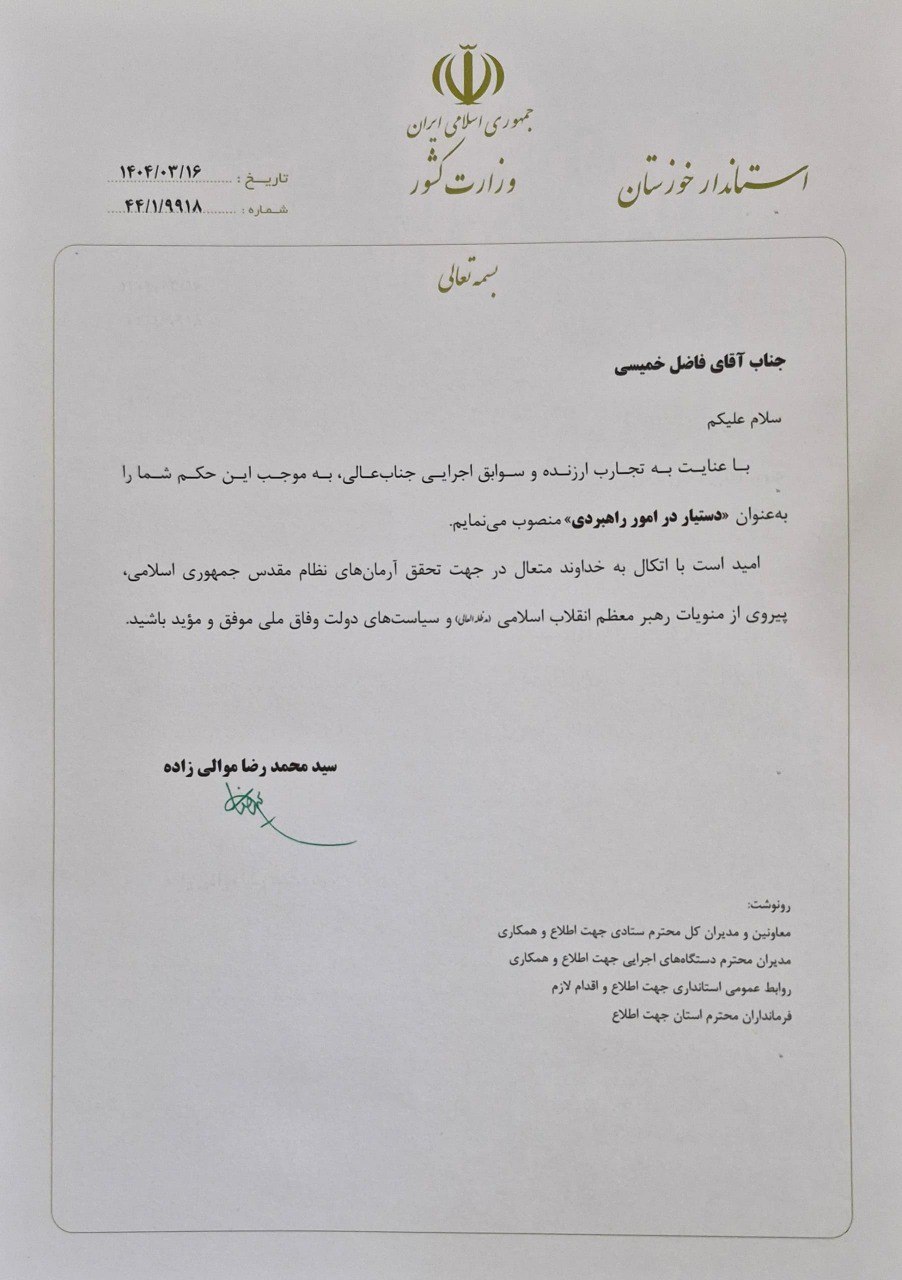 جمهوری اسلامی ایران
وزارت کشور
استاندار خوزستان
تاریخ : ۱۴۰۴/۰۳/۱۶
شماره : ۴۴/۱/۹۹۱۸
بسمه تعالی
جناب آقای فاضل خمیسی
سلام علیکم
با عنایت به تجارب ارزنده و سوابق اجرایی جناب‌عالی، به موجب این حکم شما را
به‌عنوان «دستیار در امور راهبردی» منصوب می‌نمایم.
امید است با اتکال به خداوند متعال در جهت تحقق آرمان‌های نظام مقدس جمهوری اسلامی،
پیروی از منویات رهبر معظم انقلاب اسلامی (مدظله العالی) و سیاست‌های دولت وفاق ملی موفق و مؤید باشید.
سید محمد رضا موالی زاده
رونوشت:
معاونین و مدیران کل محترم ستادی جهت اطلاع و همکاری
مدیران محترم دستگاه‌های اجرایی جهت اطلاع و همکاری
روابط عمومی استانداری جهت اطلاع و اقدام لازم
فرمانداران محترم استان جهت اطلاع